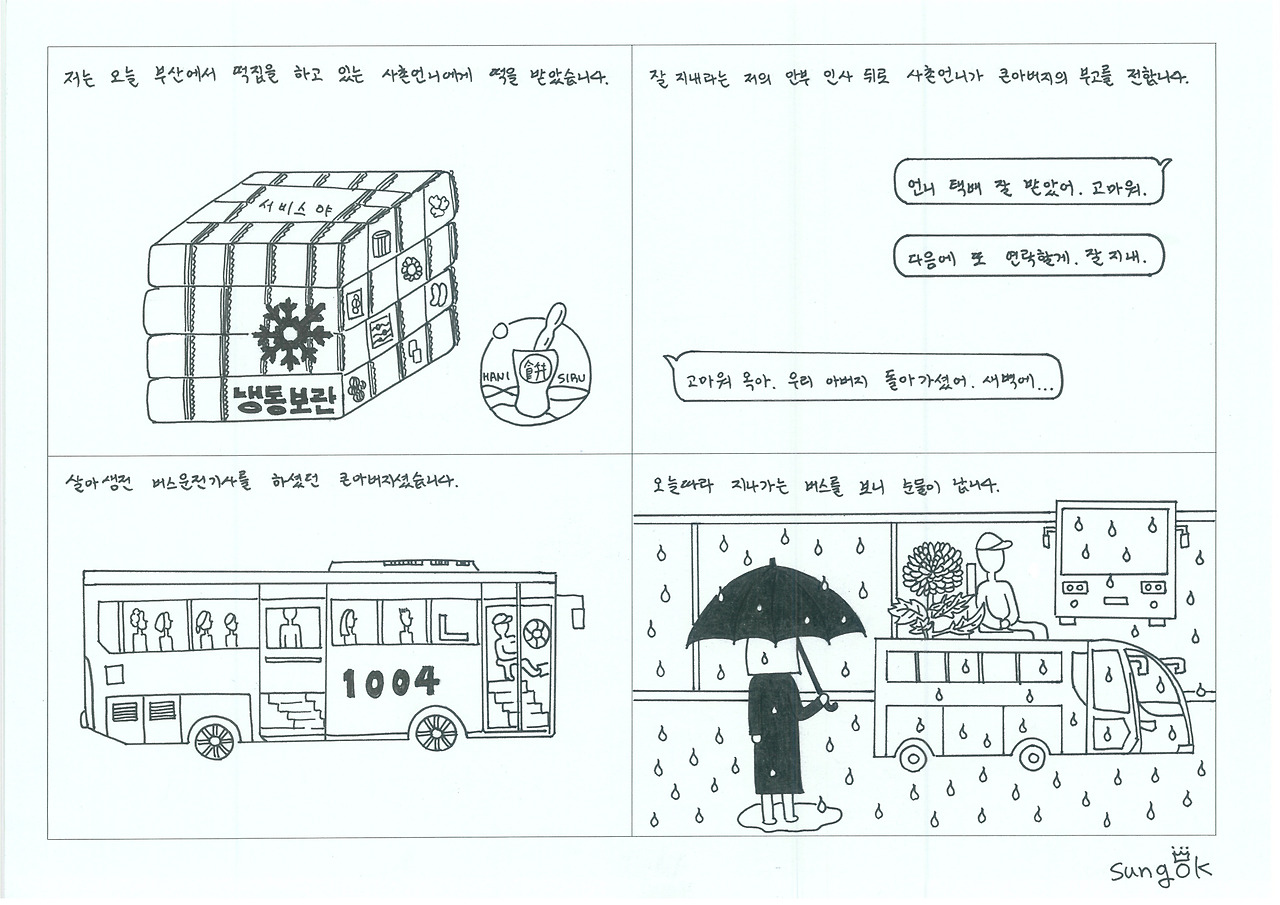 저는 오늘 부산에서 떡집을 하고 있는 사촌언니에게 떡을 받았습니다.
서비스야
냉동보관
HANI SIRU
잘 지내라는 저의 안부 인사 뒤로 사촌언니가 큰아버지의 부고를 전합니다.
언니 택배 잘 받았어. 고마워.
다음에 또 연락할게. 잘 지내.
고마워 옥아. 우리 아버지 돌아가셨어. 새벽에...
살아생전 버스운전기사를 하셨던 큰아버지셨습니다.
1004
오늘따라 지나가는 버스를 보니 눈물이 납니다.
sungok